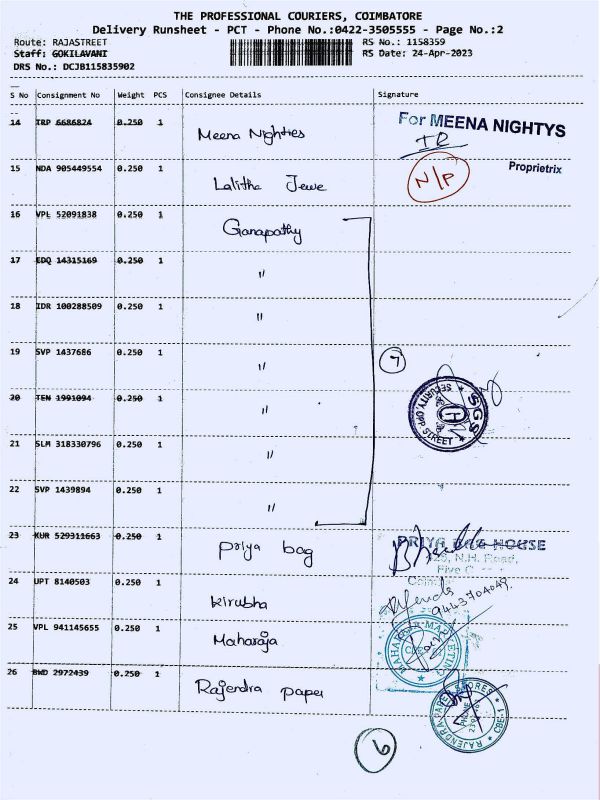 THE PROFESSIONAL COURIERS, COIMBATORE
Delivery Runsheet - PCT - Phone No.:0422-3505555 - Page No.:2
Route: RAJASTREET RS No.: 1158359
Staff: GOKILAVANI RS Date: 24-Apr-2023
DRS No.: DCJB115835902
S No Consignment No Weight PCS Consignee Details Signature
14 IRP 6686824 0.250 1 Meena Nighties For MEENA NIGHTYS
Proprietrix
15 NDA 905449554 0.250 1 Lalitha Jewe N/P
16 VPL 52091838 0.250 1 Ganapathy
17 EDQ 14315169 0.250 1 "
18 IDR 100288509 0.250 1 "
19 SVP 1437686 0.250 1 " 7
20 TEN 1991094 0.250 1 " SGS SECURITY, OPP. STREET
21 SLM 318330796 0.250 1 "
22 SVP 1439894 0.250 1 "
23 KUR 529311663 0.250 1 Priya bag PRIYA BAG HOUSE
N.H. Road,
24 UPT 8140503 0.250 1 Kirubha 9443704049
25 VPL 941145655 0.250 1 Maharaja MAHARAJA MARKETING
26 BWD 2972439 0.250 1 Rajendra paper RAJENDRA PAPER STORES CBE-1
6